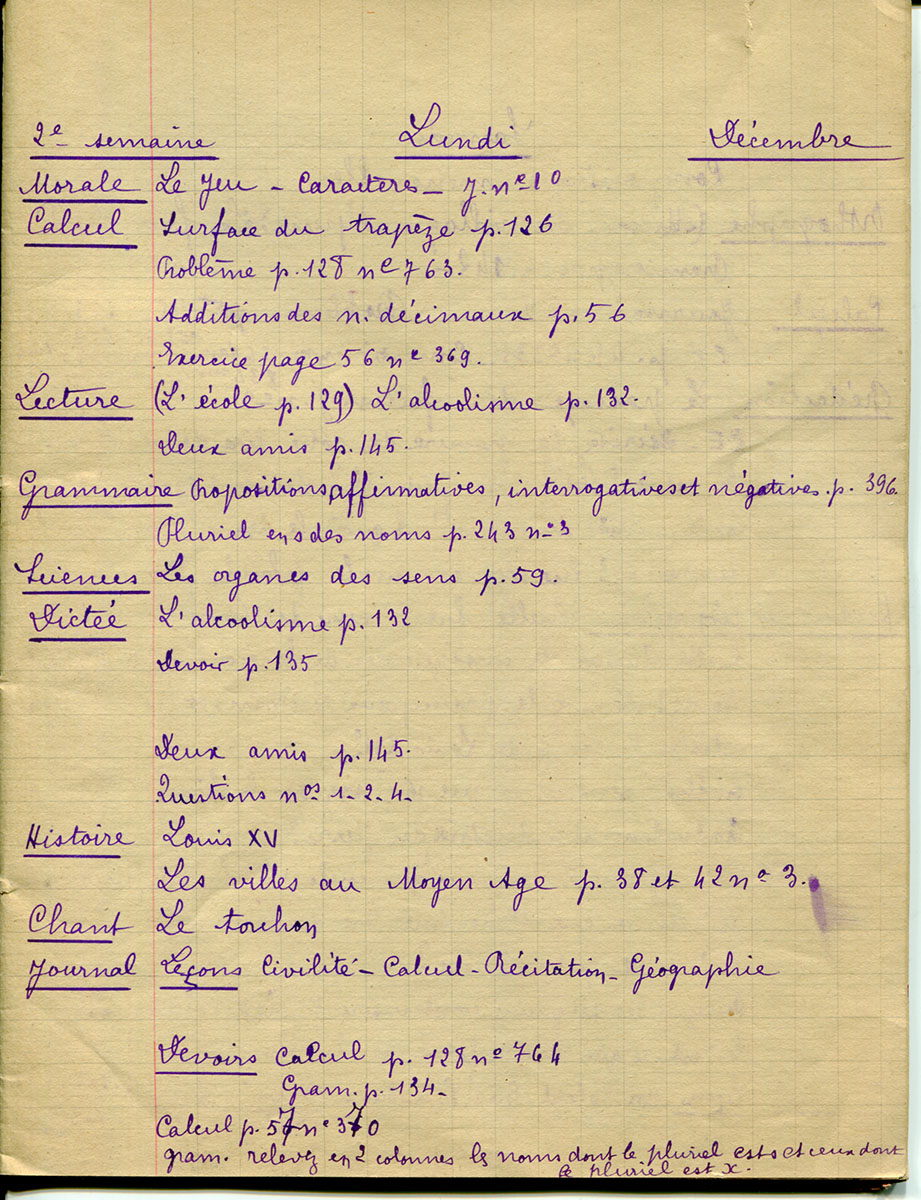 2e semaine Lundi Décembre
Morale Le Jeu - Caractères - J. no 10
Calcul Surface du trapèze p. 126
Problème p. 128 no 763.
Additions des n. décimaux p. 56
Exercice page 56 no 369.
Lecture (L'école p. 129) L'alcoolisme p. 132.
Deux amis p. 145.
Grammaire Propositions affirmatives, interrogatives et négatives. p. 396
Pluriel en s des noms p. 243 no 3
Sciences Les organes des sens p. 59.
Dictée L'alcoolisme p. 132
Devoir p. 135
Deux amis p. 145.
Questions nos 1-2-4-
Histoire Louis XV
Les villes au Moyen Age p. 38 et 42 no 3.
Chant Le torchon
Journal Leçons Civilité - Calcul - Récitation - Géographie
Devoirs Calcul p. 128 no 764
Gram. p. 134-
Calcul p. 57 no 370
gram. relevez en 2 colonnes les noms dont le pluriel est s et ceux dont
le pluriel est x.